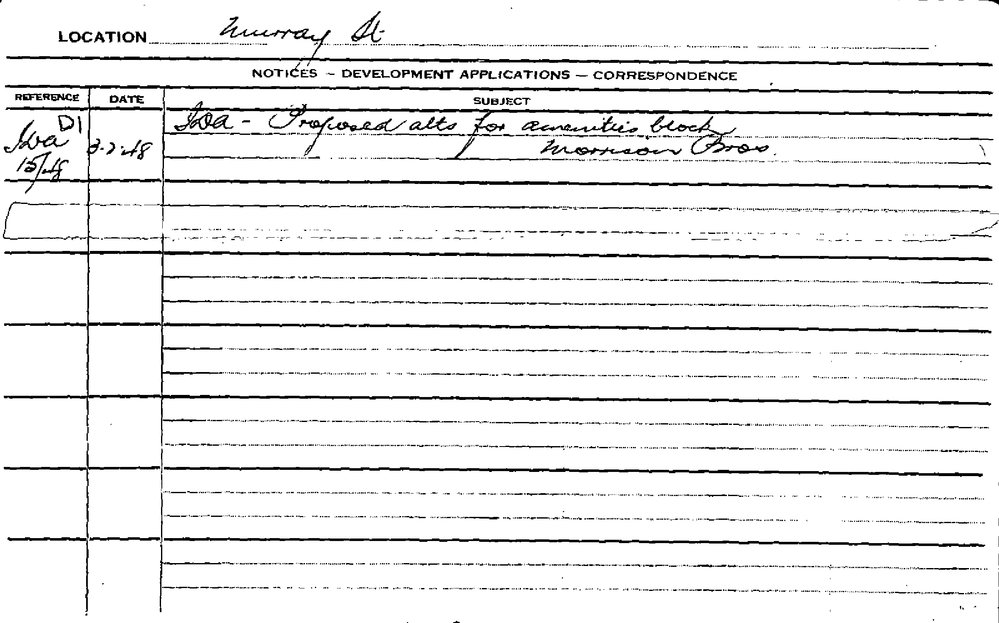 LOCATION Murray St
NOTICES – DEVELOPMENT APPLICATIONS – CORRESPONDENCE
REFERENCE DATE SUBJECT
D1
Ida 3.2.48 Ida - Proposed alts for amenities block
15/48 Morrison Bros.